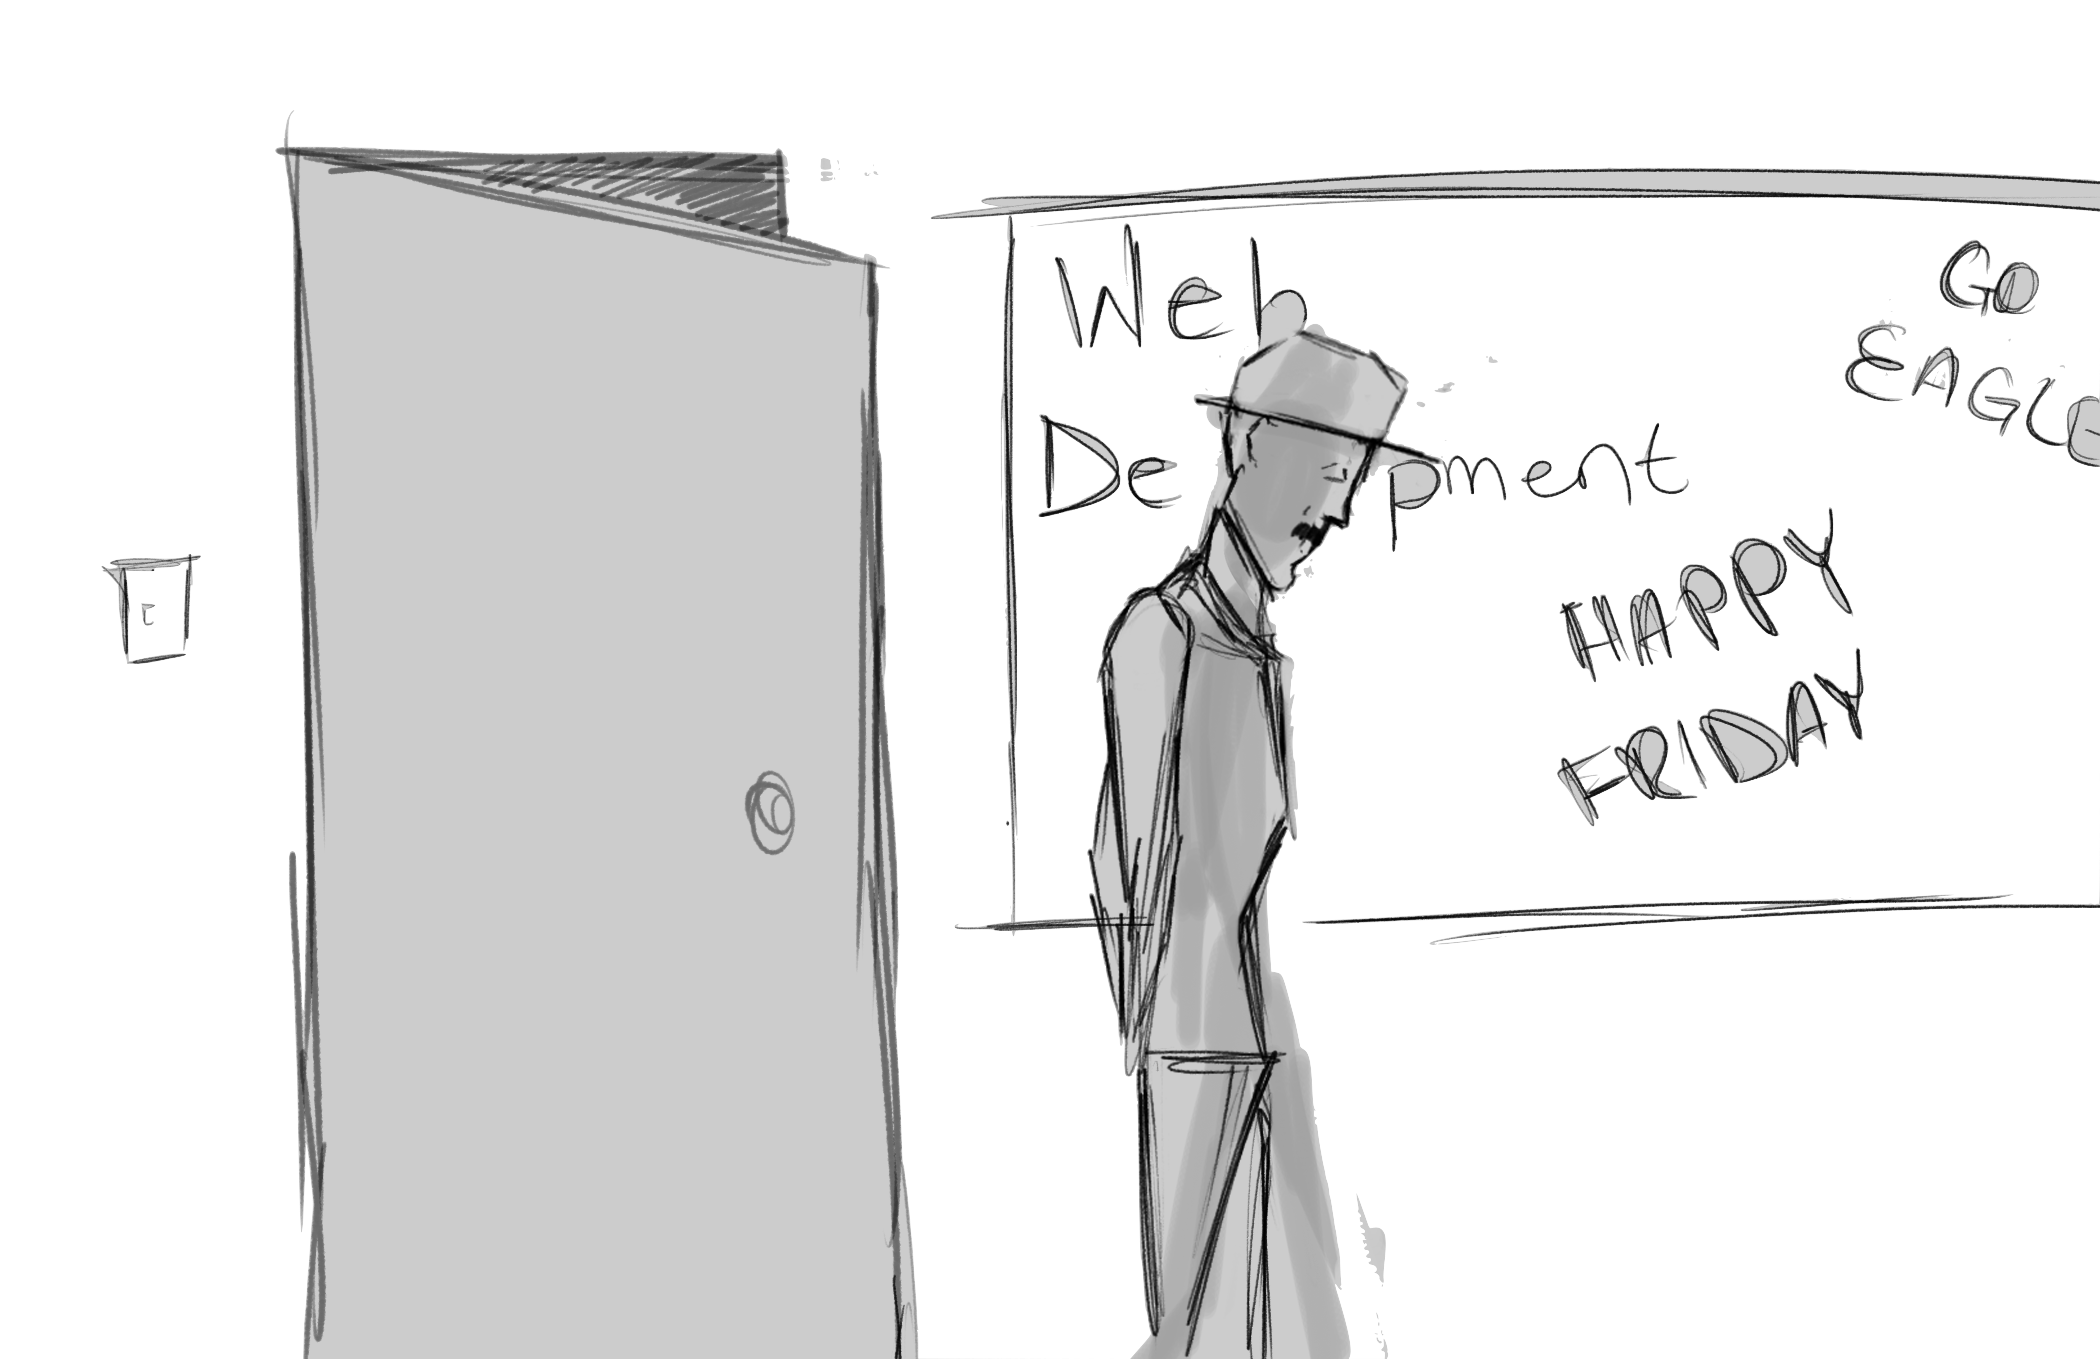 Web
De pment
GO
EAGLE
HAPPY
FRIDAY